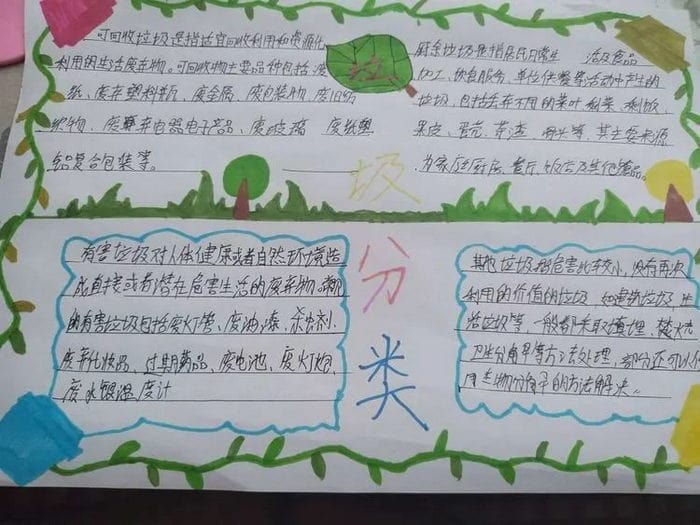 可回收垃圾是指适宜回收利用和资源化
利用的生活废弃物。可回收物主要品种包括:废
纸、废弃塑料瓶、废金属、废包装物、废旧纺
织物、废弃电器电子产品、废玻璃 废纸塑
铝复合包装等。
厨余垃圾是指居民日常生 活及食品
加工、饮食服务、单位供餐等活动中产生的
垃圾,包括丢弃不用的菜叶、剩菜、剩饭、
果皮、蛋壳、茶渣、骨头等,其主要来源
为家庭厨房、餐厅、饭店及其他
垃
圾
分
类
有害垃圾对人体健康或者自然环境造
成直接或者潜在危害生活的废弃物。常见
的有害垃圾包括废灯管、废油漆、杀虫剂、
废弃化妆品、过期药品、废电池、废灯炮、
废水银温度计
其他垃圾指危害比较小,没有再次
利用的价值的垃圾,如建筑垃圾,生
活垃圾等,一般都采取填埋、焚烧
卫生分解等方法处理,部分还可以
用生物分解的方法解决。